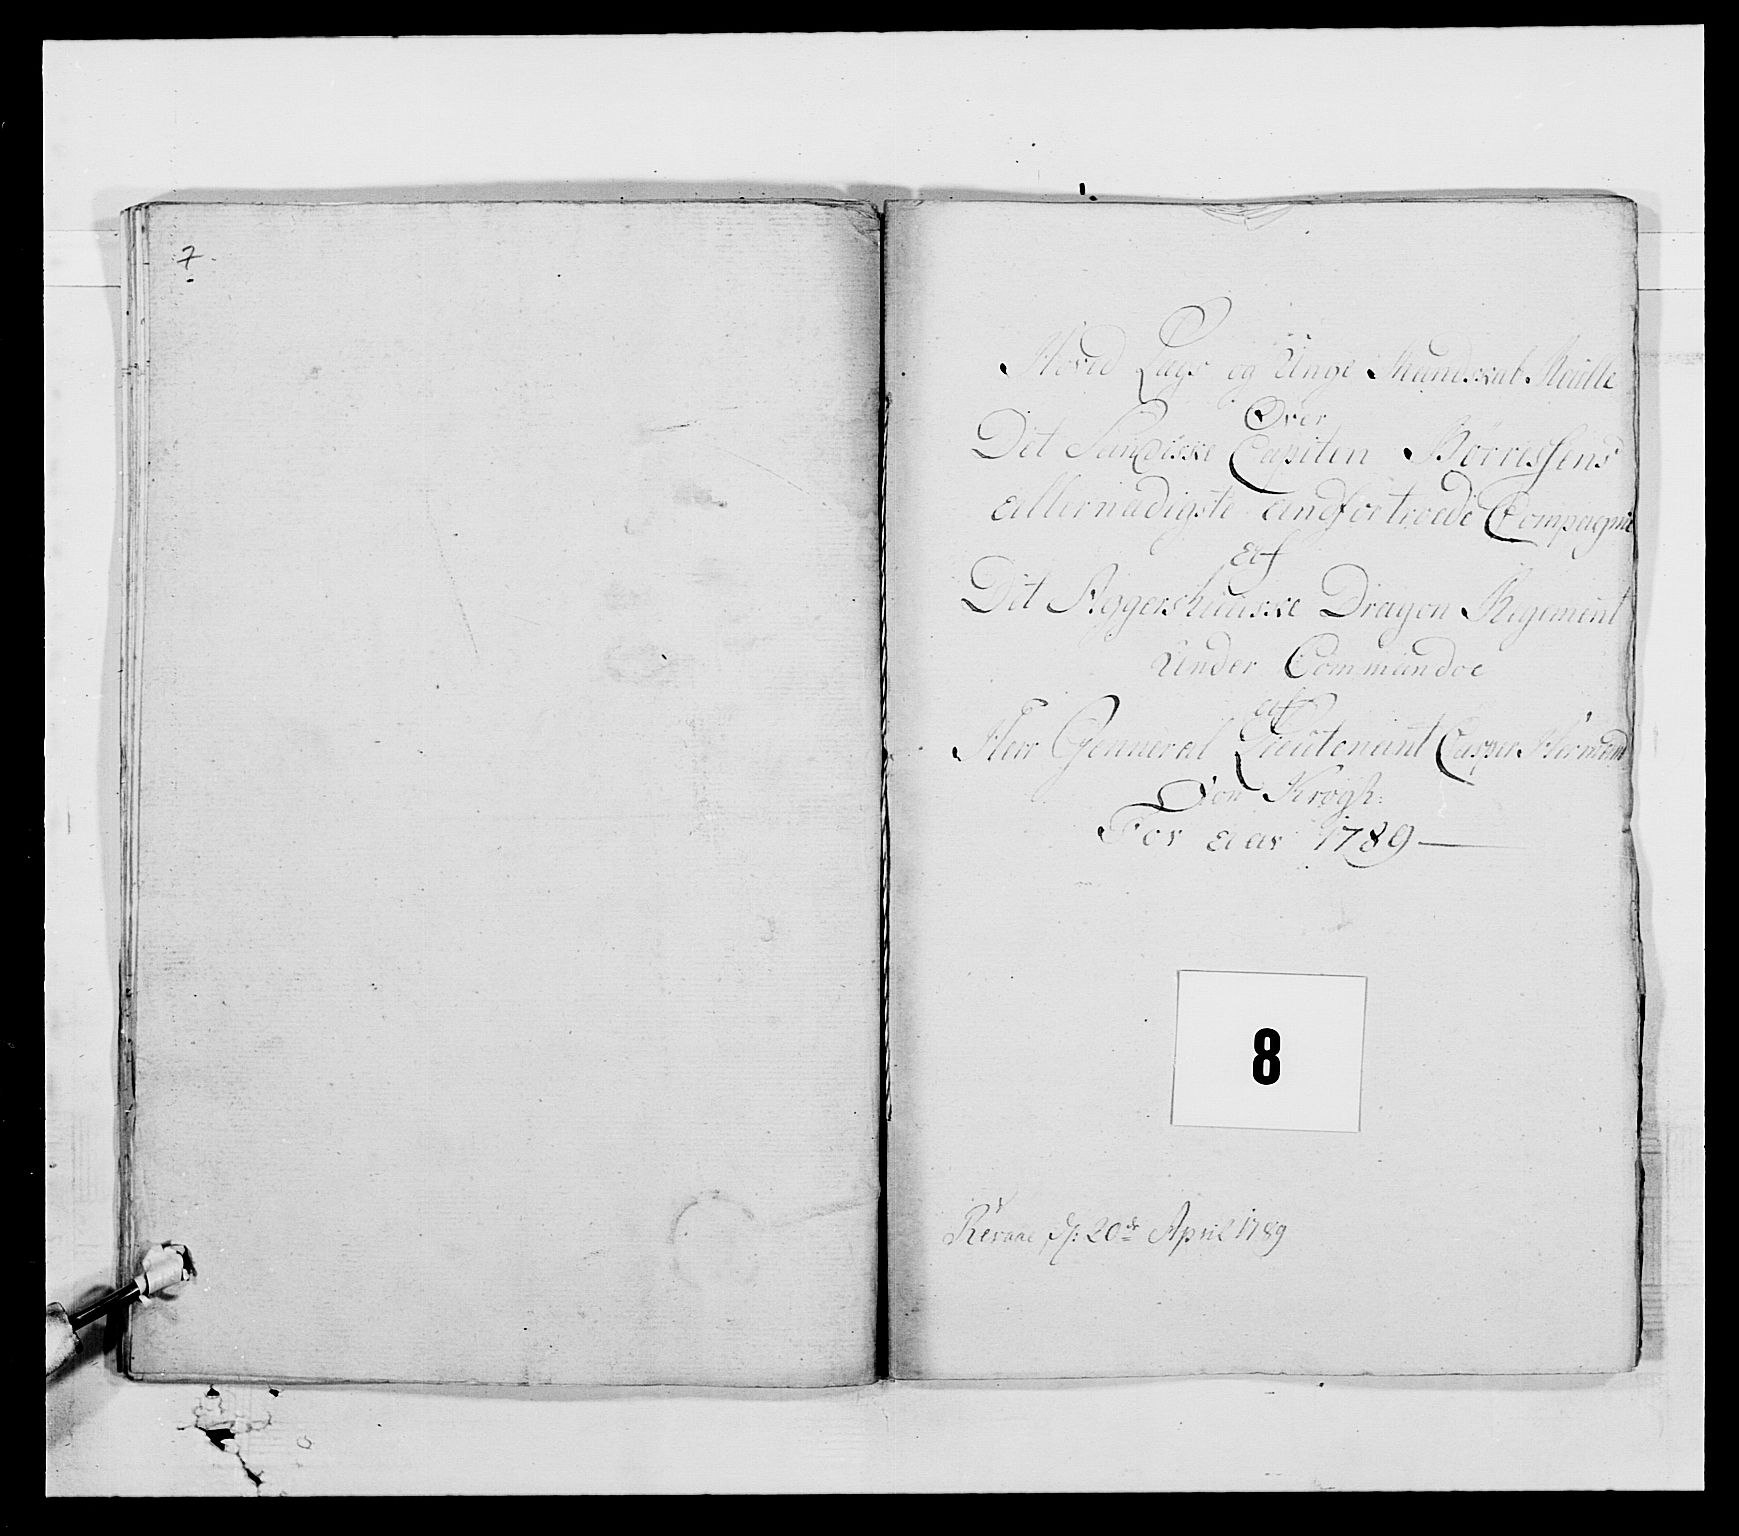 7.
Hoved Lags og Unge Mandskab Rulle
Over
Det Sundiske Capiten Børressens
allernadigste andfortroede Compagnie
af
Det Aggershuuske Dragon Regiment
Under Commandoe
af
Herr Genneral Lieutenant Casper Herman
Von Krogh:
For aar 1789
8
d: 20de April 1789